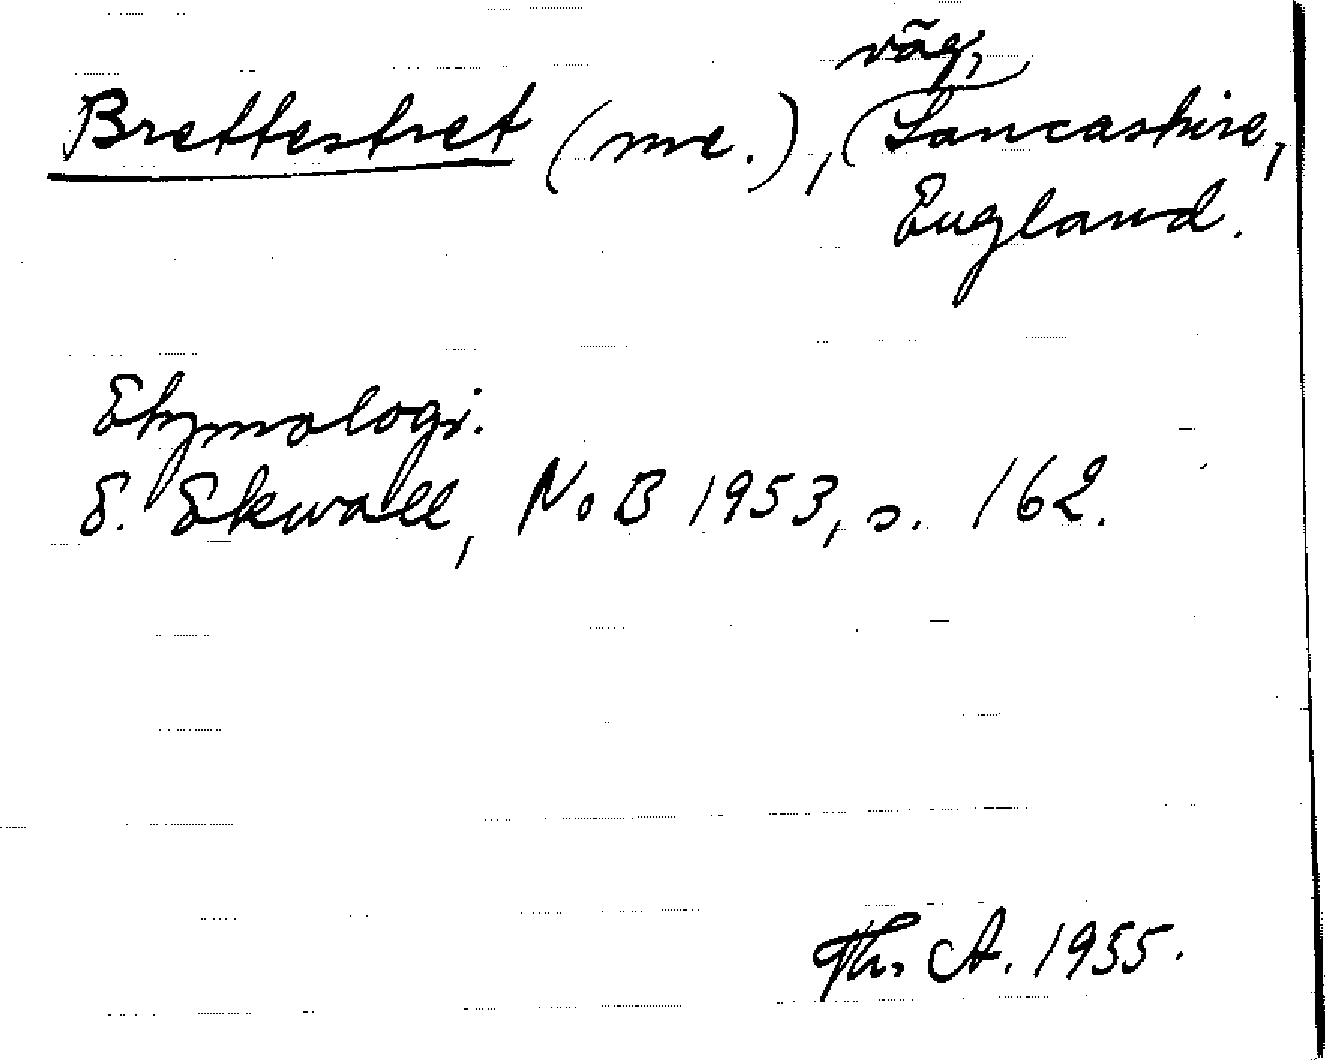 Brettestret (me.), väg, Lancashire,
England.
Etymologi.
E. Ekwall, NoB 1953, s. 162.
Th. A. 1955.